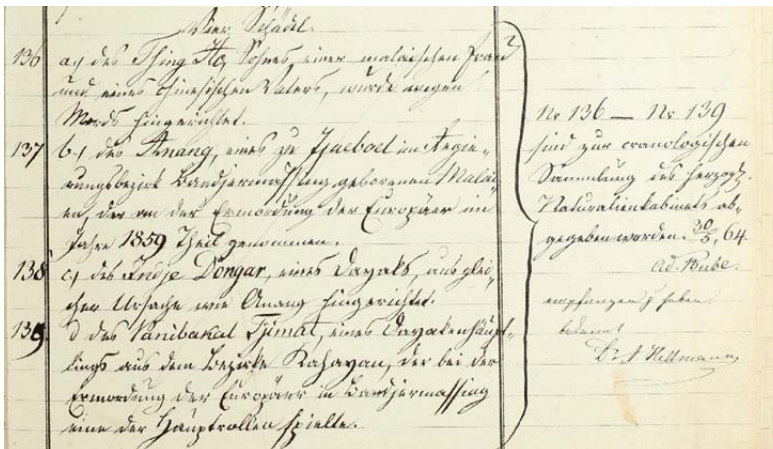 Vier Schädel.
136 a, des Thing Ho, Sohnes einer malaischen Frau
und eines chinesischen Vaters, wurde wegen
Mords hingerichtet.
137 b, des Anang, eines zu Tjueboet im Regie-
rungsbezirk Bandjermassing geborenen Malai-
en, der an der Ermordung der Europäer im
Jahre 1859 Theil genommen.
138 c, des Indje Dongar, eines Dayaks, aus glei-
cher Ursache wie Anang hingerichtet.
139 d des Panibakal Tjimat, eines Dayakenhäupt-
lings aus dem Bezirke Kahayan, der bei der
Ermordung der Europäer in Bandjermassing
eine der Hauptrollen spielte.
Nr 136 — Nr 139
sind zur craniologischen
Sammlung des Herzogl.
Naturalienkabinets ab-
gegeben worden. 30/5, 64
Ad. Bube.
empfangen zu haben
bekennt
Dr A Hellmann